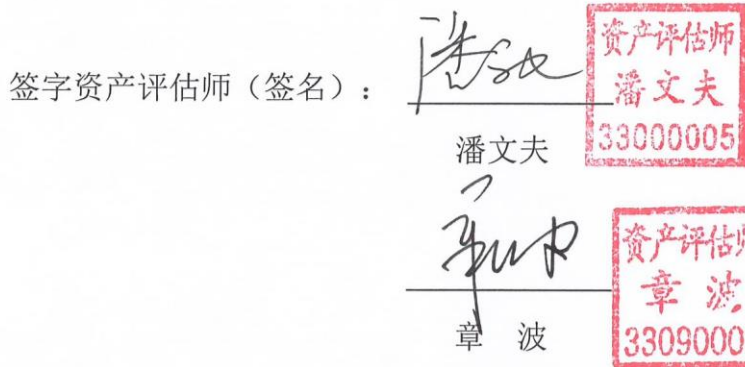 资产评估师
签字资产评估师（签名）：
潘文夫
33000005
潘文夫
资产评估师
章波
3309000
章 波